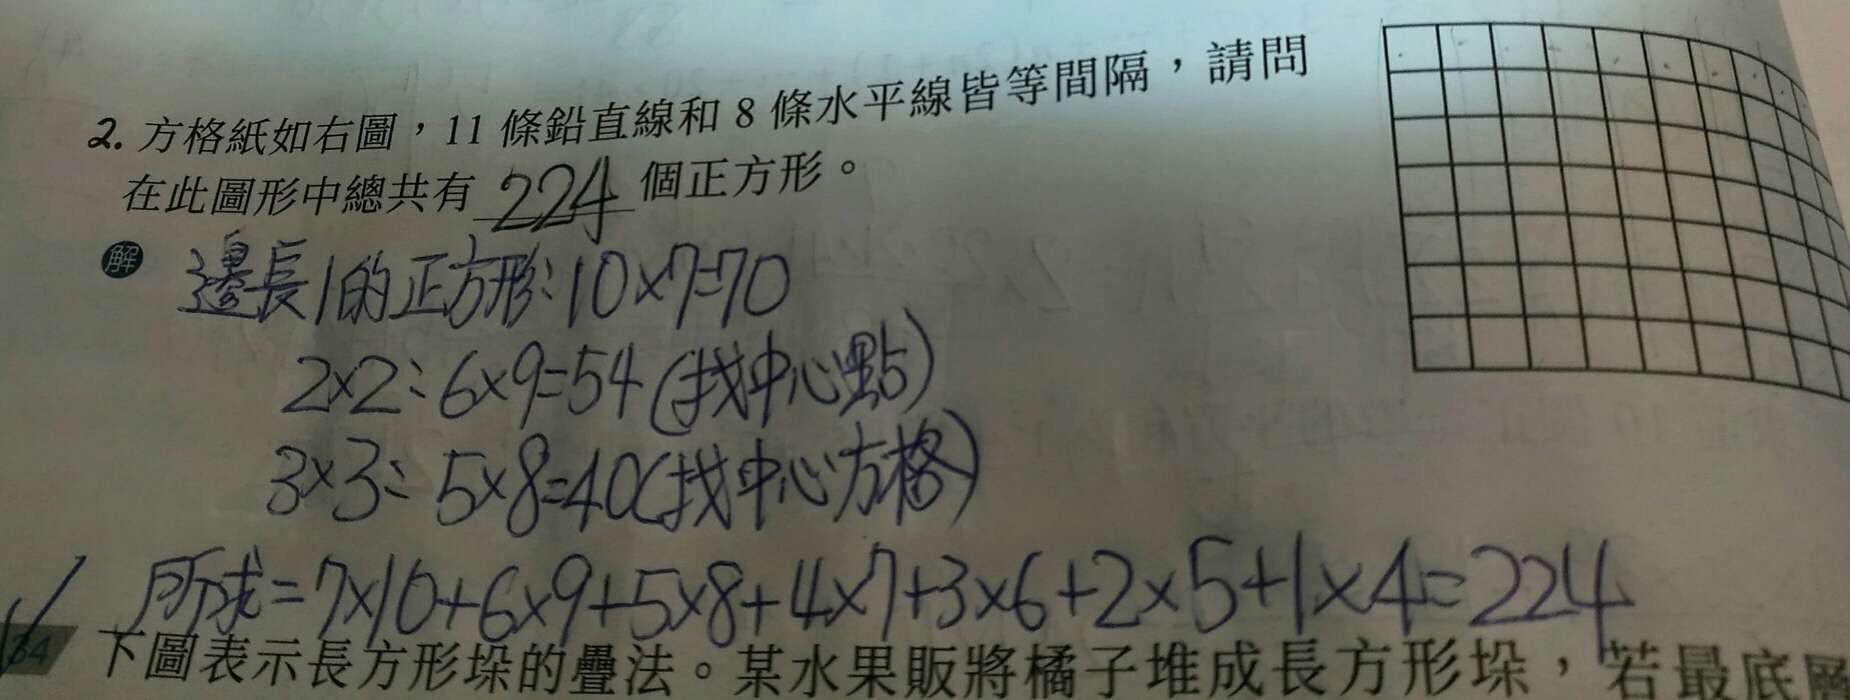 2. 方格紙如右圖，11 條鉛直線和 8 條水平線皆等間隔，請問
在此圖形中總共有 224 個正方形。
解 邊長1的正方形:10×7=70
2×2:6×9=54(找中心點)
3×3:5×8=40(找中心方格)
所求=7×10+6×9+5×8+4×7+3×6+2×5+1×4=224
34 下圖表示長方形垛的疊法。某水果販將橘子堆成長方形垛，若最底層